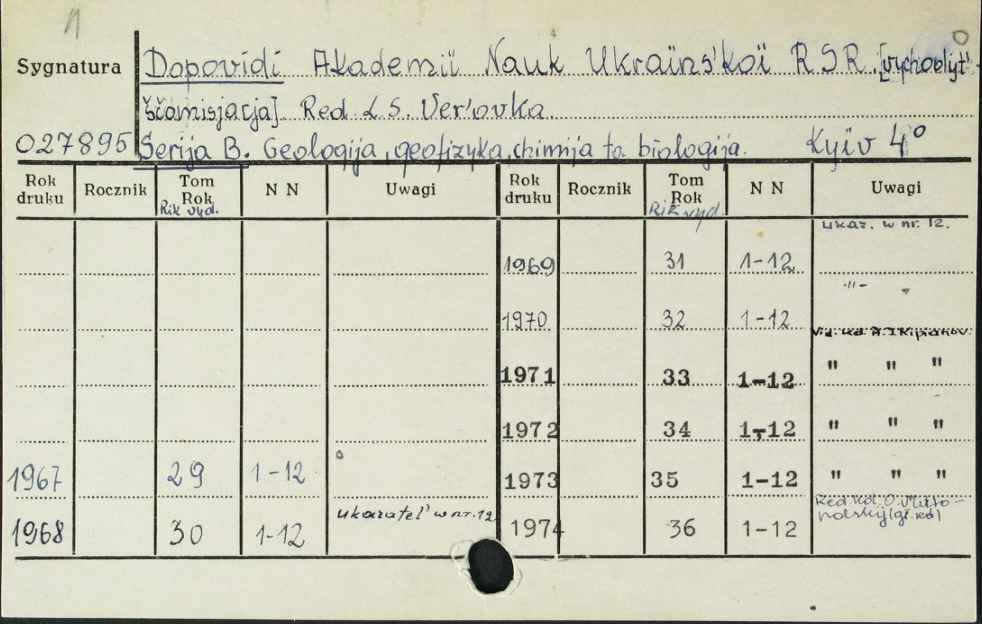 Sygnatura Dopovidi Akademiï Nauk Ukraïns'koï RSR [vychodyt'
ščomisjacja] Red
027895 Serija B. Geologija, geofizyka, chimija ta biologija. Kyïv 4°
Rok druku Rocznik Tom Rok Rik vyd. N N Uwagi Rok druku Rocznik Tom Rok Rik vyd. N N Uwagi
ukaz. w nr. 12.
1969 31 1-12
-"-
1970 32 1-12
Vid. red
1971 33 1-12 " " "
1972 34 1-12 " " "
1967 29 1-12 1973 35 1-12 " " "
1968 30 1-12 ukazatel' w nr. 12 1974 36 1-12 Red. kol. O.